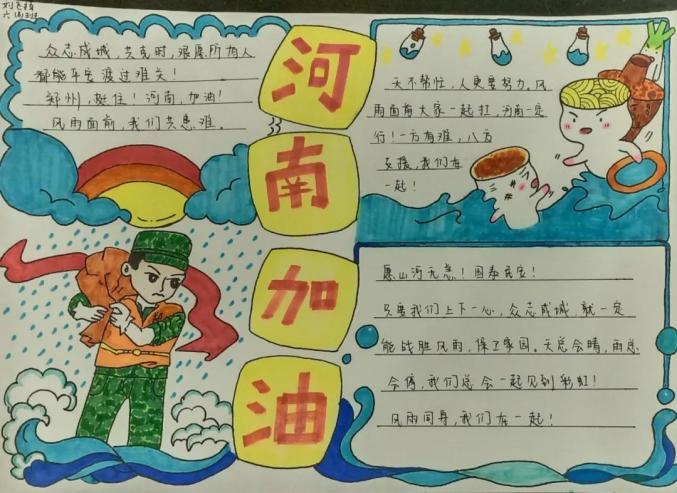 六(4)班
众志成城，共克时，艰愿所有人
都能平安渡过难关！
郑州，挺住！河南，加油！
风雨面前，我们共患难。
河
南
加
油
天不帮忙，人更要努力。风
雨面前大家一起扛，河南一定
行！一方有难，八方
支援，我们在
一起！
愿山河无恙！国泰民安！
只要我们上下一心，众志成城，就一定
能战胜风雨，保卫家园。天总会晴，雨总
会停，我们总会一起见到彩虹！
风雨同舟，我们在一起！